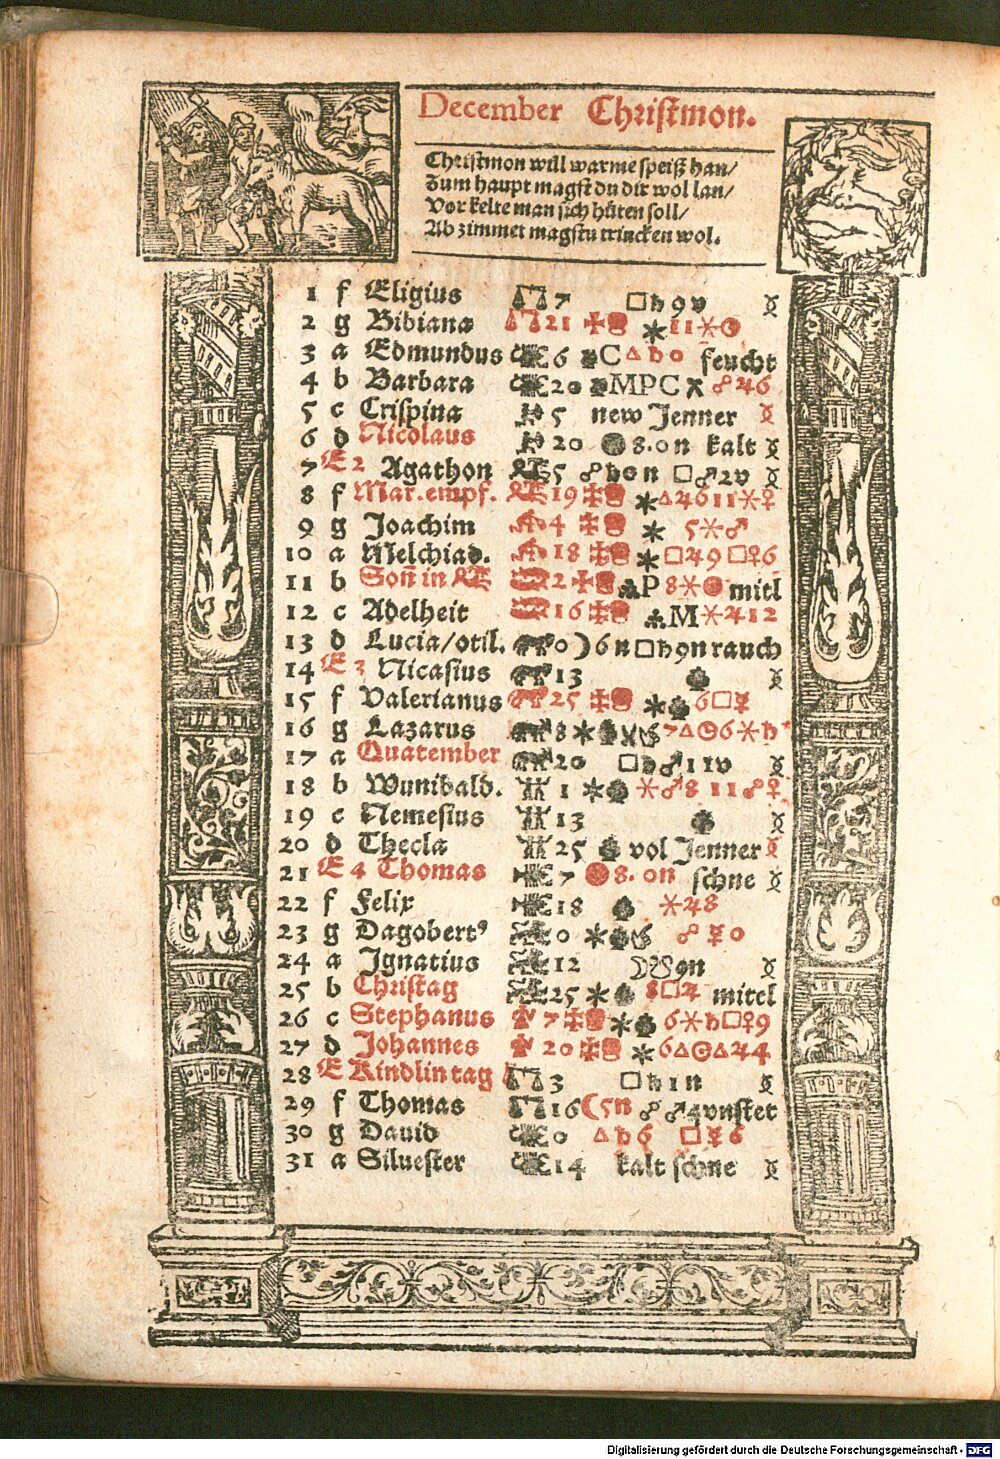 December Christmon.
Christmon will warme speiß han/
Zum haupt magst du dir wol lan/
Vor kelte man sich hüten soll/
Ab zimmet magstu trincken wol.
1 f Eligius ♎ 7 □ ♄ 9 v
2 g Bibiana ♎ 21 ✠ ✶ 11 ⚹ ☉
3 a Edmundus 6 C △ ♄ 0 feucht
4 b Barbara 20 MPC ☍ ♃ 6
5 c Crispina 5 new Jenner
6 d Nicolaus 20 8. on kalt
7 E 2 Agathon 5 ☍ ♄ 0 n □ ♂ 2 v
8 f Mar. empf. 19 ✠ ✶ △ ♃ 6 11 ⚹ ♀
9 g Joachim 4 ✠ ✶ 5 ⚹ ♂
10 a Melchiad. 18 ✠ ✶ □ ♃ 9 □ ♀ 6
11 b Soñ in 2 ✠ P 8 ⚹ mitl
12 c Adelheit 16 ✠ M ⚹ ♃ 12
13 d Lucia/otil. 0 ☽ 6 n □ ♄ 9n rauch
14 E 3 Nicasius 13
15 f Valerianus 25 ✠ ✶ 6 □ ☿
16 g Lazarus 8 ✶ 7 △ ☉ 6 ⚹ ♄
17 a Quatember 20 □ ♂ 11 v
18 b Wunibald. 1 ✶ ⚹ ♂ 8 11 ☍ ♀
19 c Nemesius 13
20 d Thecla 25 vol Jenner
21 E 4 Thomas 7 8. on schne
22 f Felix 18 ⚹ ♃ 8
23 g Dagobert⁹ 0 ✶ ☍ ☿ 0
24 a Ignatius 12 9n
25 b Christag 25 ✶ 8 □ ♃ mitel
26 c Stephanus 7 ✠ ✶ 6 ⚹ ♄ □ ♀ 9
27 d Johannes 20 ✠ ✶ 6 △ ☉ △ ♃ 4
28 E Kindlintag ♎ 3 □ ♄ 1 n
29 f Thomas ♎ 16 ☾ 5n ☍ ♂ 4 vnstet
30 g Dauid 0 △ ♄ 6 □ ☿ 6
31 a Siluester 14 kalt schne
Digitalisierung gefördert durch die Deutsche Forschungsgemeinschaft - DFG